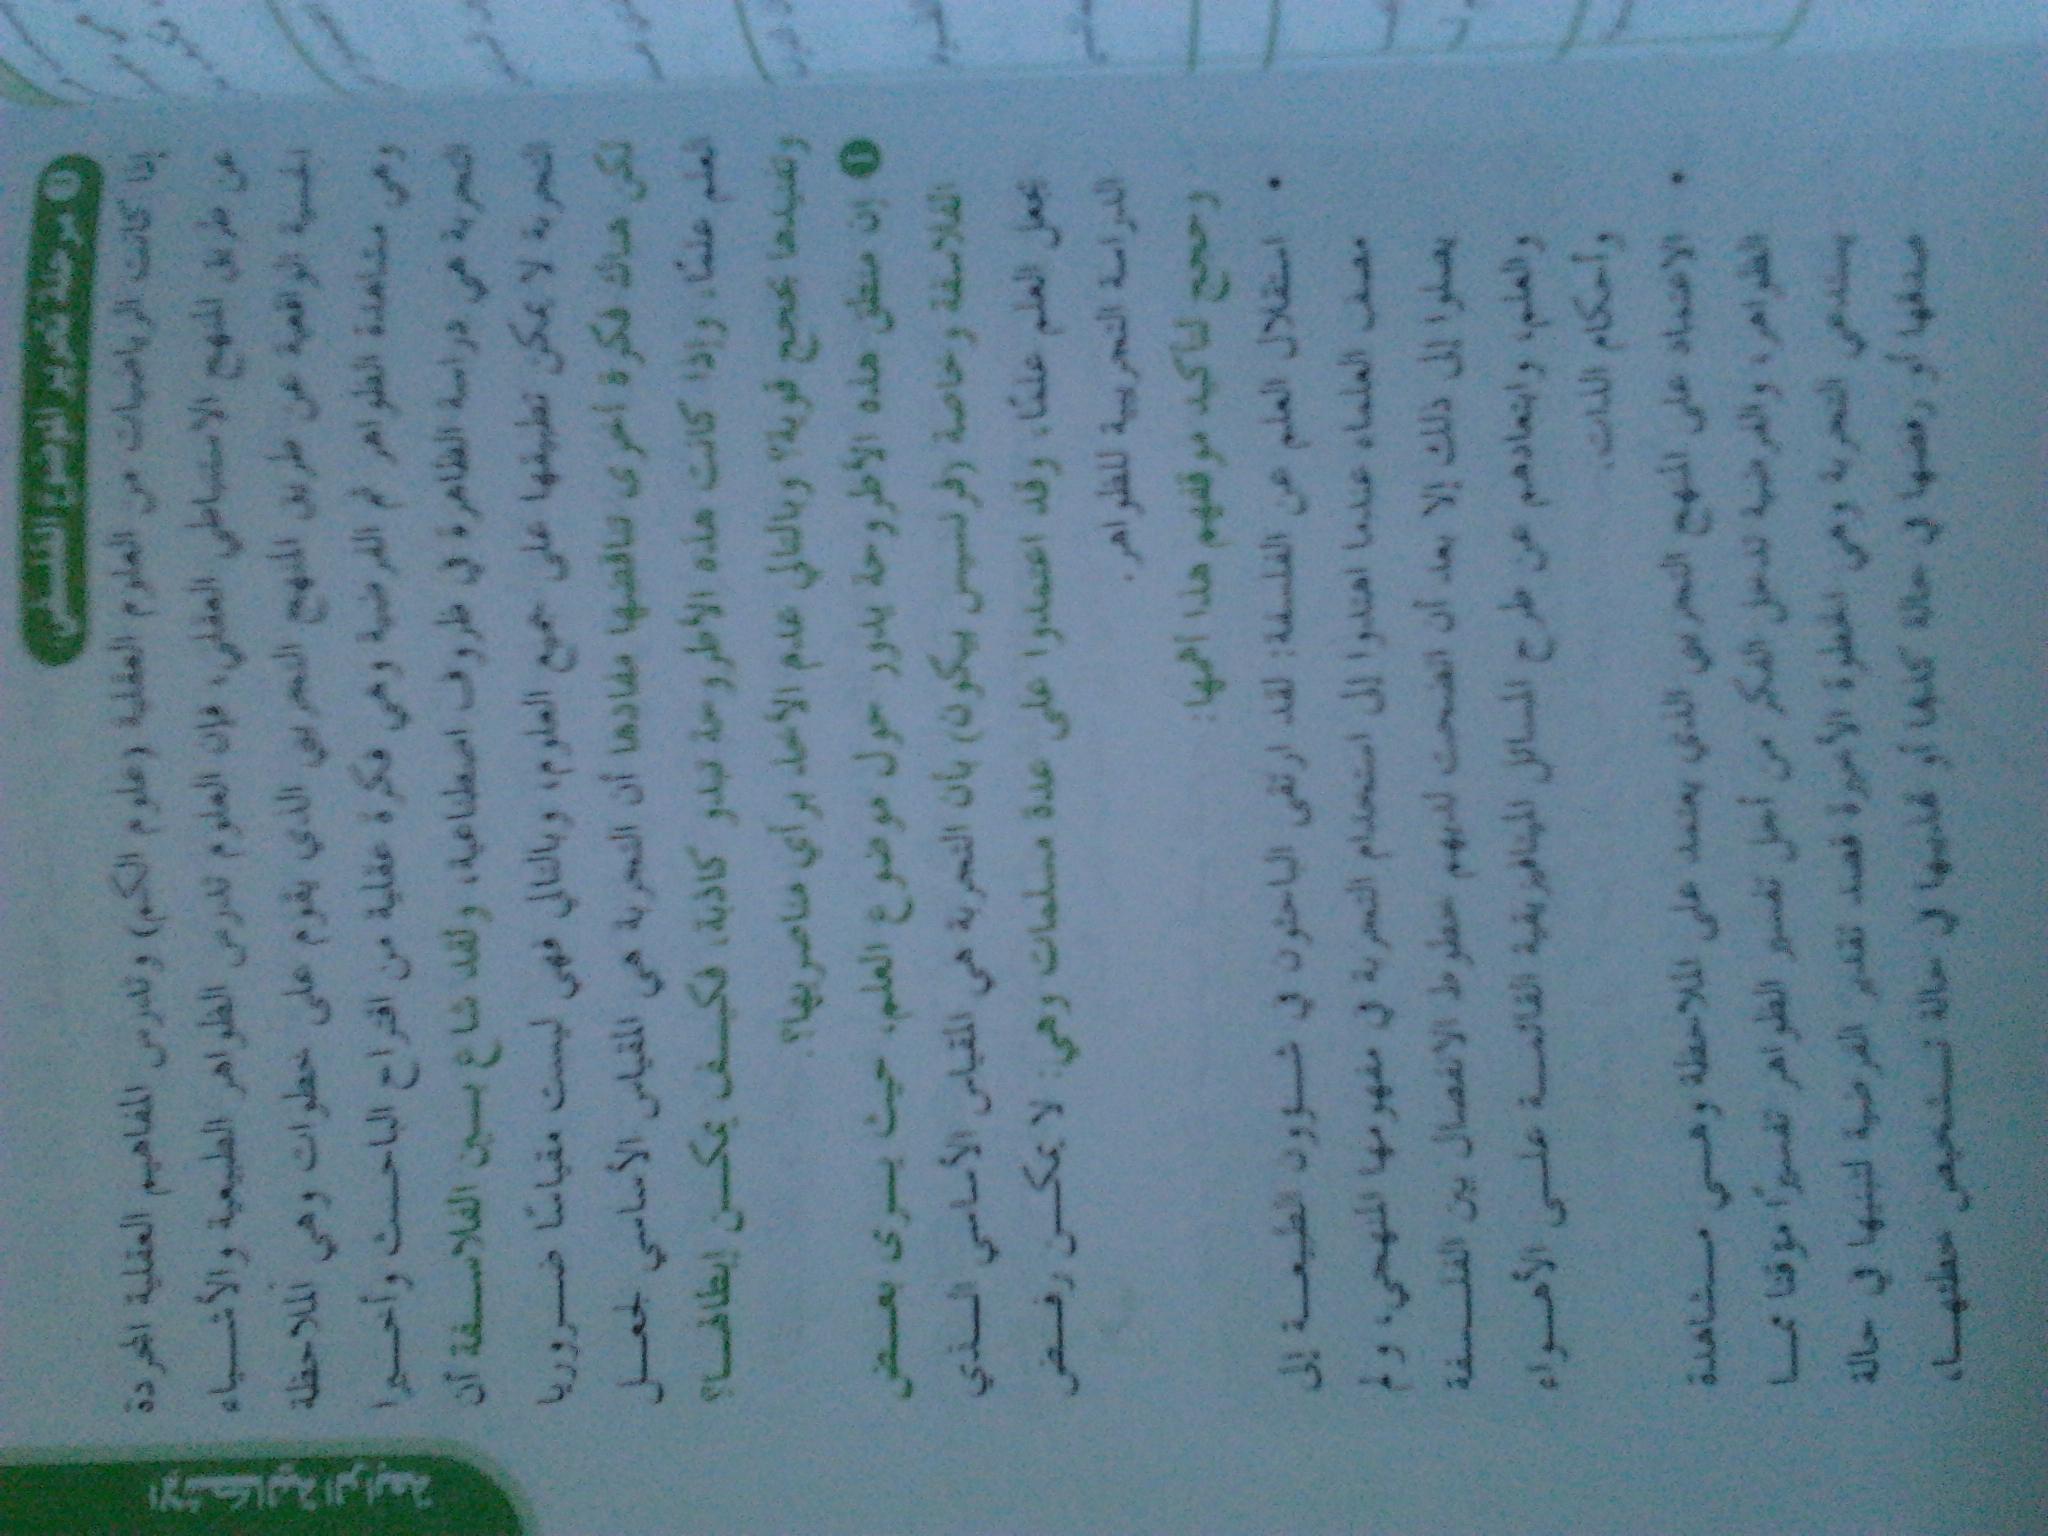 الإشكالية الرابعة
مرحلة تحرير الموضوع الفلسفي
إذا كانت الرياضيات من العلوم العقلية (علوم الكم) وتدرس المفاهيم العقلية المجردة
عن طريق المنهج الاستنباطي العقلي، فإن العلوم تدرس الظواهر الطبيعية والأشياء
الحسية الواقعية عن طريق المنهج التجريبي الذي يقوم على خطوات وهي الملاحظة
وهي مشاهدة الظواهر ثم الفرضية وهي فكرة عقلية من اقتراح الباحث وأخيرا
التجربة هي دراسة الظاهرة في ظروف اصطناعية، ولقد شاع بين الفلاسفة أن
التجربة لا يمكن تطبيقها على جميع العلوم، وبالتالي فهي ليست مقياسًا ضروريا
لكن هناك فكرة أخرى تناقضها مفادها أن التجربة هي المقياس الأساسي لجعل
العلم علمًا، وإذا كانت هذه الأطروحة تبدو كاذبة، فكيف يمكن إبطالها؟
وتفنيدها بحجج قوية؟ وبالتالي عدم الأخذ برأي مناصريها؟.
1 إن منطق هذه الأطروحة يدور حول موضوع العلم، حيث يرى بعض
الفلاسفة وخاصة (فرنسيس بيكون) بأن التجربة هي المقياس الأساسي الذي
يجعل العلم علمًا، وقد اعتمدوا على عدة مسلمات وهي: لا يمكن رفض
الدراسة التجريبية للظواهر.
وحجج لتأكيد موقفهم هذا أهمها:
• استقلال العلم عن الفلسفة: لقد ارتقى الباحثون في شؤون الطبيعة إلى
مصف العلماء عندما اهتدوا إلى استخدام التجربة في مفهومها المنهجي، ولم
يصلوا إلى ذلك إلا بعد أن اتضحت لديهم خطوط الانفصال بين الفلسفة
والعلم، وابتعادهم عن طرح المسائل الميتافيزيقية القائمة على الأهواء
وأحكام الذات.
• الاعتماد على المنهج التجريبي الذي يعتمد على الملاحظة وهي مشاهدة
الظواهر، والفرضية تدخل الفكر من أجل تفسير الظواهر تفسيرًا موقتا مما
يستدعي التجربة وهي الخطوة الأخيرة قصد تقدير الفرضية لتبنيها في حالة
صدقها أو رفضها في حالة كذبها أو تهذيبها في حالة تشخيص خطئها،